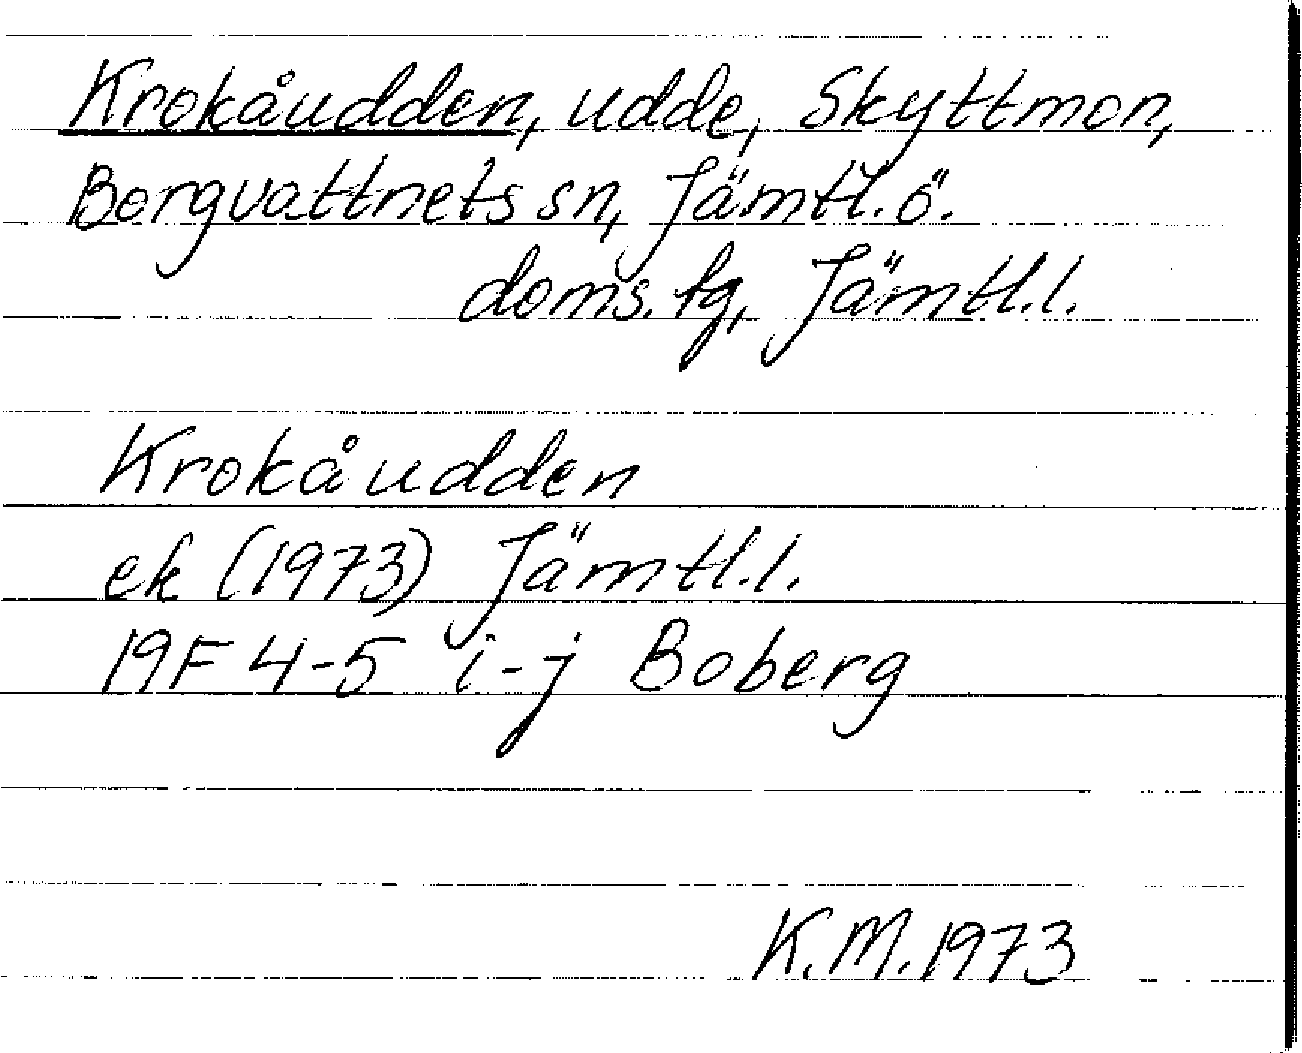 Krokåudden, udde, Skyttmon,
Borgvattnets sn, Jämtl. ö.
doms. tg, Jämtl. l.
Krokåudden
ek (1973) Jämtl. l.
19F 4-5 i-j Boberg
K.M. 1973